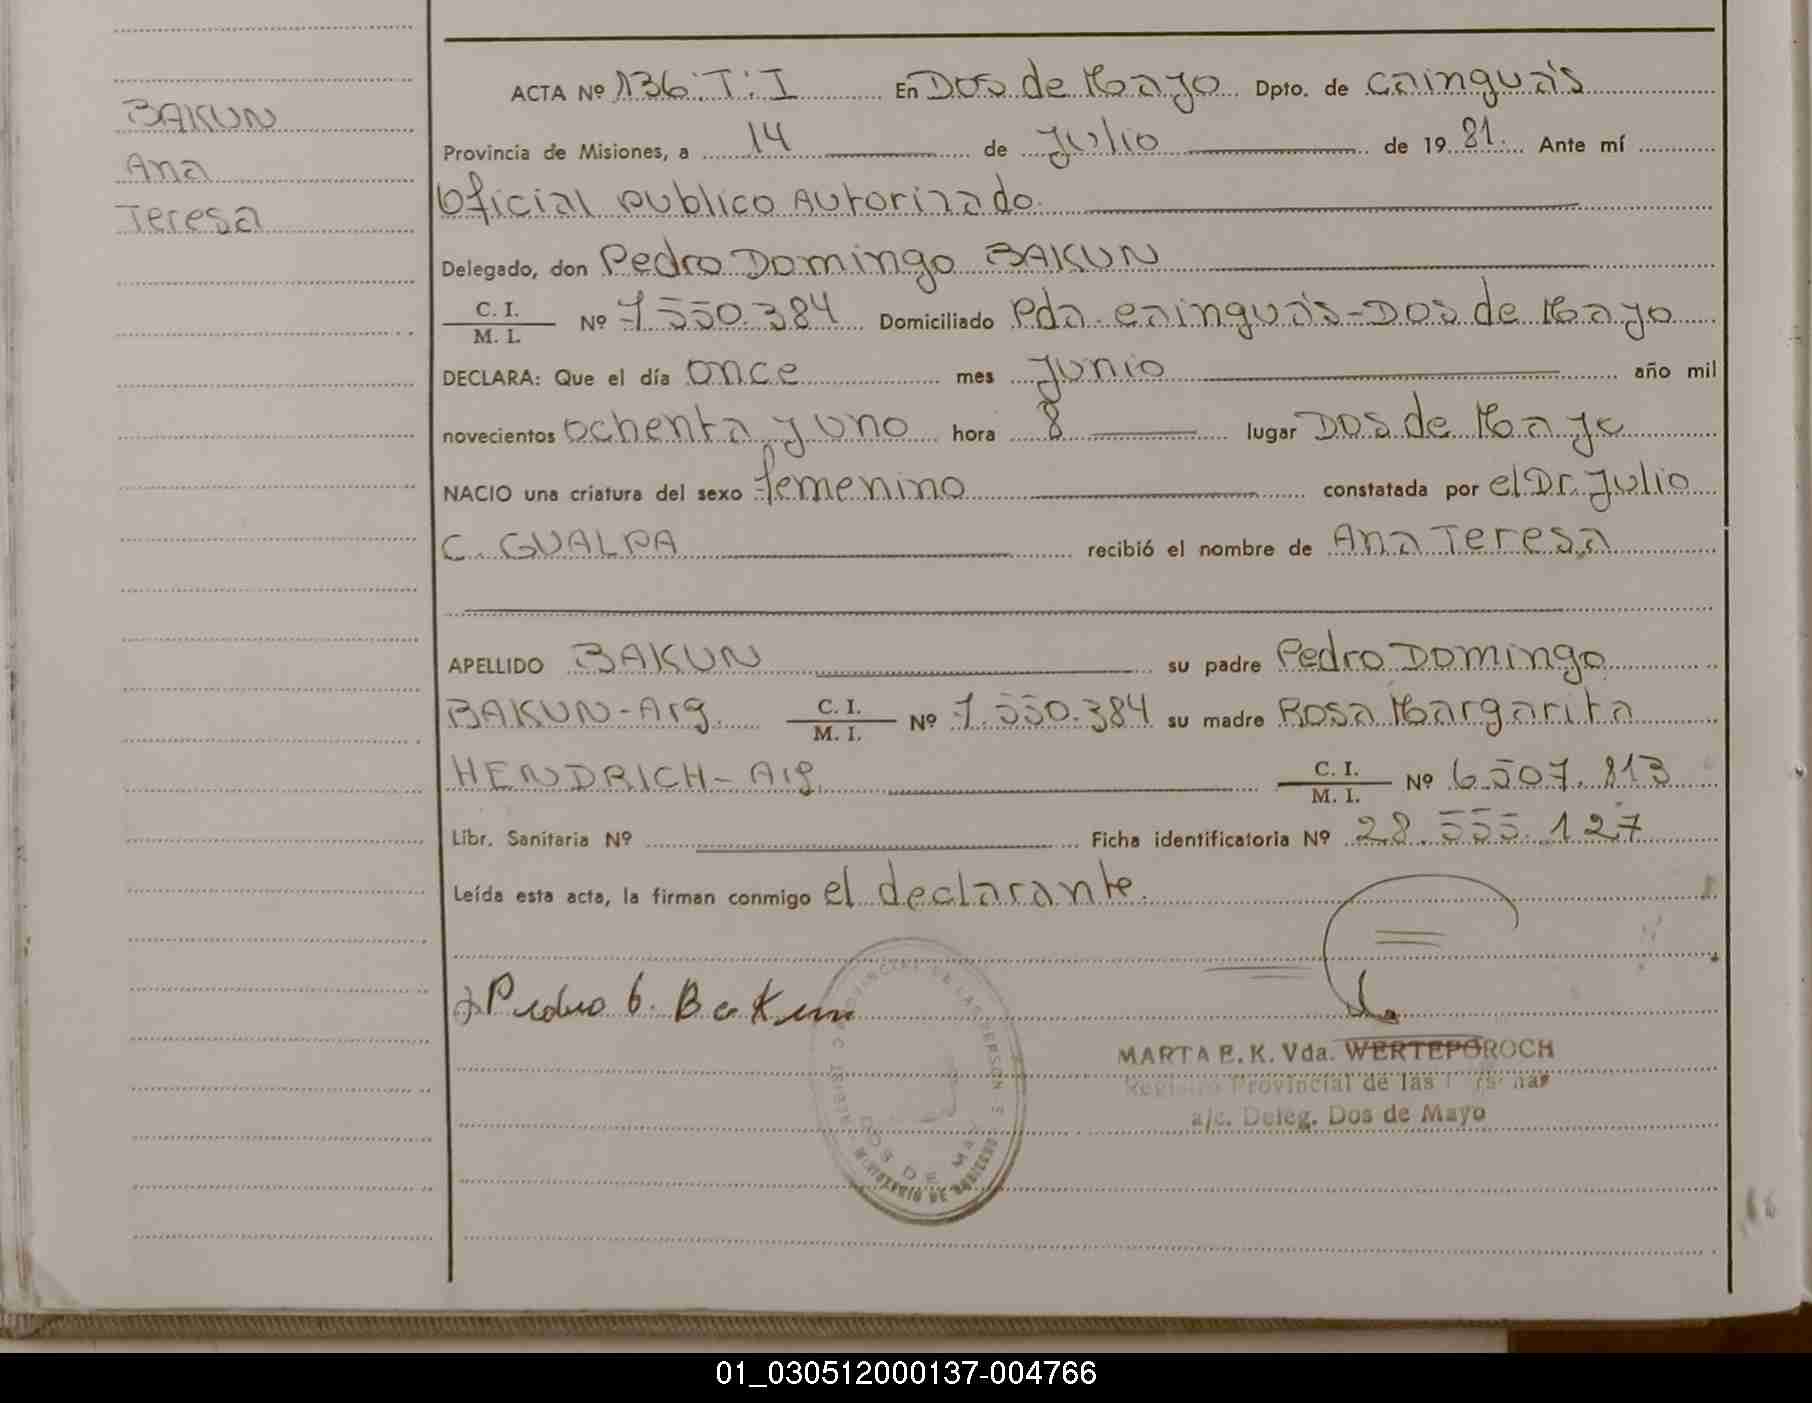 BAKUN
Ana
Teresa
ACTA Nº 136. T: I En Dos de Mayo Dpto. de Cainguás
Provincia de Misiones, a 14 de Julio de 19 81. Ante mí
Oficial publico Autorizado
Delegado, don Pedro Domingo BAKUN
C. I.
M. I. Nº 7.550.384 Domiciliado Pda. Cainguás-Dos de Mayo
DECLARA: Que el día once mes Junio año mil
novecientos ochenta y uno hora 8 lugar Dos de Mayo
NACIO una criatura del sexo femenino constatada por el Dr. Julio
C. GUALPA recibió el nombre de Ana Teresa
APELLIDO BAKUN su padre Pedro Domingo
BAKUN-Arg. C. I. M. I. Nº 7.550.384 su madre Rosa Margarita
HENDRICH-Arg. C. I. M. I. Nº 6.507.813
Libr. Sanitaria Nº Ficha identificatoria Nº 28.555.127
Leída esta acta, la firman conmigo el declarante.
Pedro D. Bakun
MARTA E. K. Vda. WERTEPOROCH
Registro Provincial de las Personas
a/c. Deleg. Dos de Mayo
DOS DE MAYO
MINISTERIO DE GOBIERNO
01_030512000137-004766